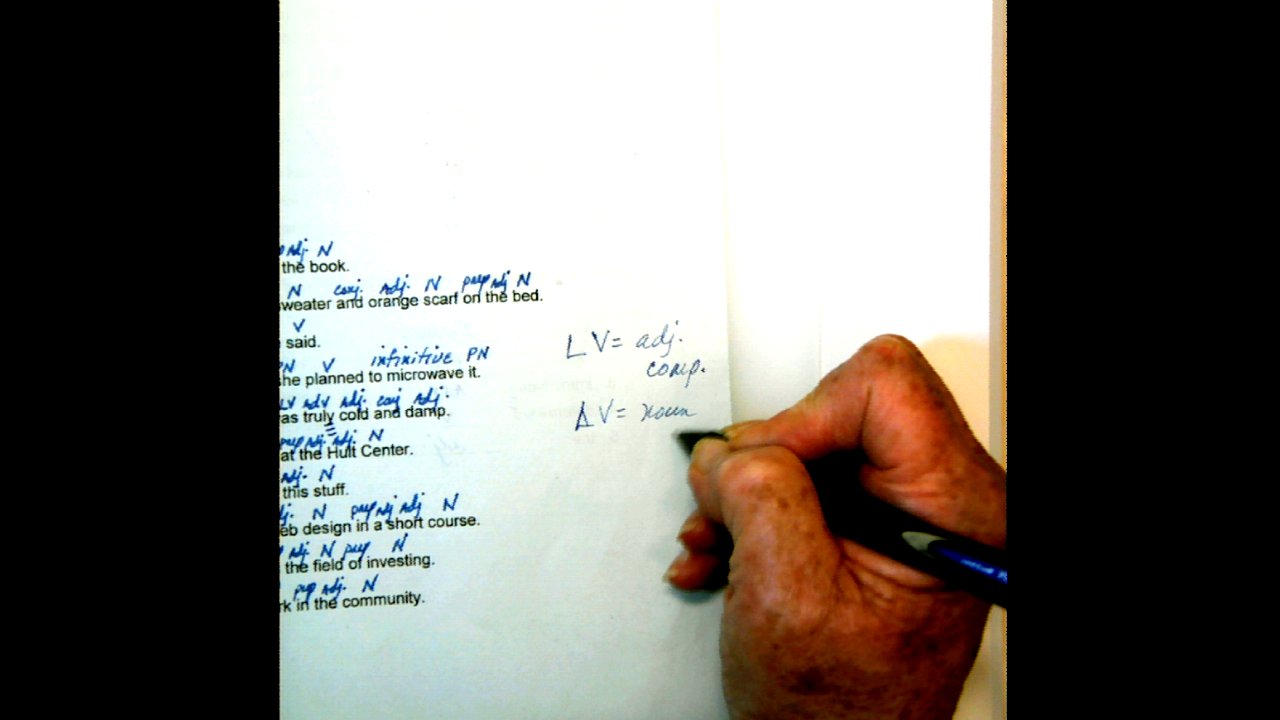 adj. N
the book.
N conj. adj. N prep adj N
sweater and orange scarf on the bed.
V
said.
PN V infinitive PN
she planned to microwave it.
LV adv adj. conj adj.
as truly cold and damp.
prep adj. adj. N
at the Hult Center.
adj. N
this stuff.
adj. N prep adj adj N
eb design in a short course.
adj. N prep N
the field of investing.
prep adj. N
rk in the community.
LV= adj.
comp.
V= noun